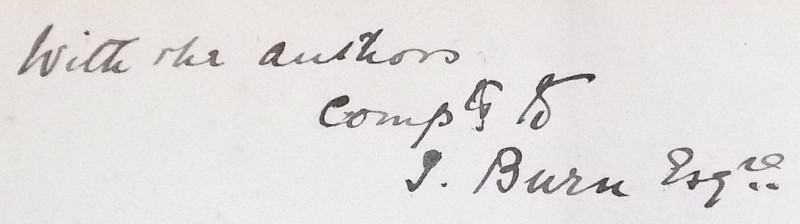 With the authors
compts to
J. Burn Esqre.